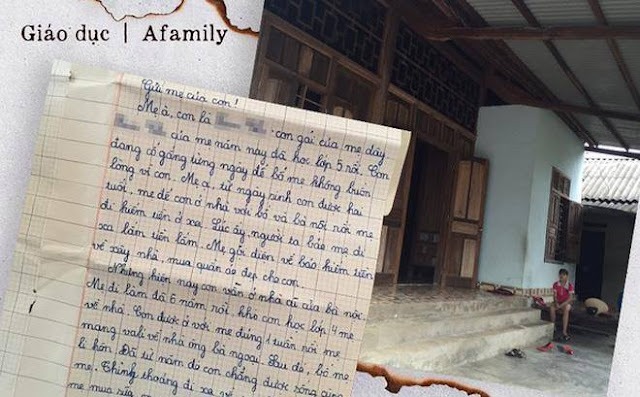 Giáo dục | Afamily
Gửi mẹ của con!
Mẹ à, con là con gái của mẹ đây.
của mẹ năm nay đã học lớp 5 rồi. Con
đang cố gắng từng ngày để bố mẹ không buồn
lòng vì con. Mẹ ạ, từ ngày sinh con được hai
tuổi, mẹ để con ở nhà với bố và bà nội rồi mẹ
đi kiếm tiền ở xa. Lúc ấy người ta bảo mẹ đi
xa lắm tiền lắm. Mẹ gọi điện về bảo kiếm tiền
về xây nhà, mua quần áo đẹp cho con.
Nhưng hiện nay con vẫn ở nhà cũ của bà nội.
Mẹ đi làm đã 6 năm rồi, khi con học lớp 4 mẹ
về nhà. Con được ở với mẹ đúng 1 tuần rồi mẹ
mang vali về nhà ông bà ngoại. Sau đó, bố mẹ
li hôn. Đã từ năm đó con chẳng được sống cùng
mẹ. Thỉnh thoảng đi xe về
mẹ mua sữa